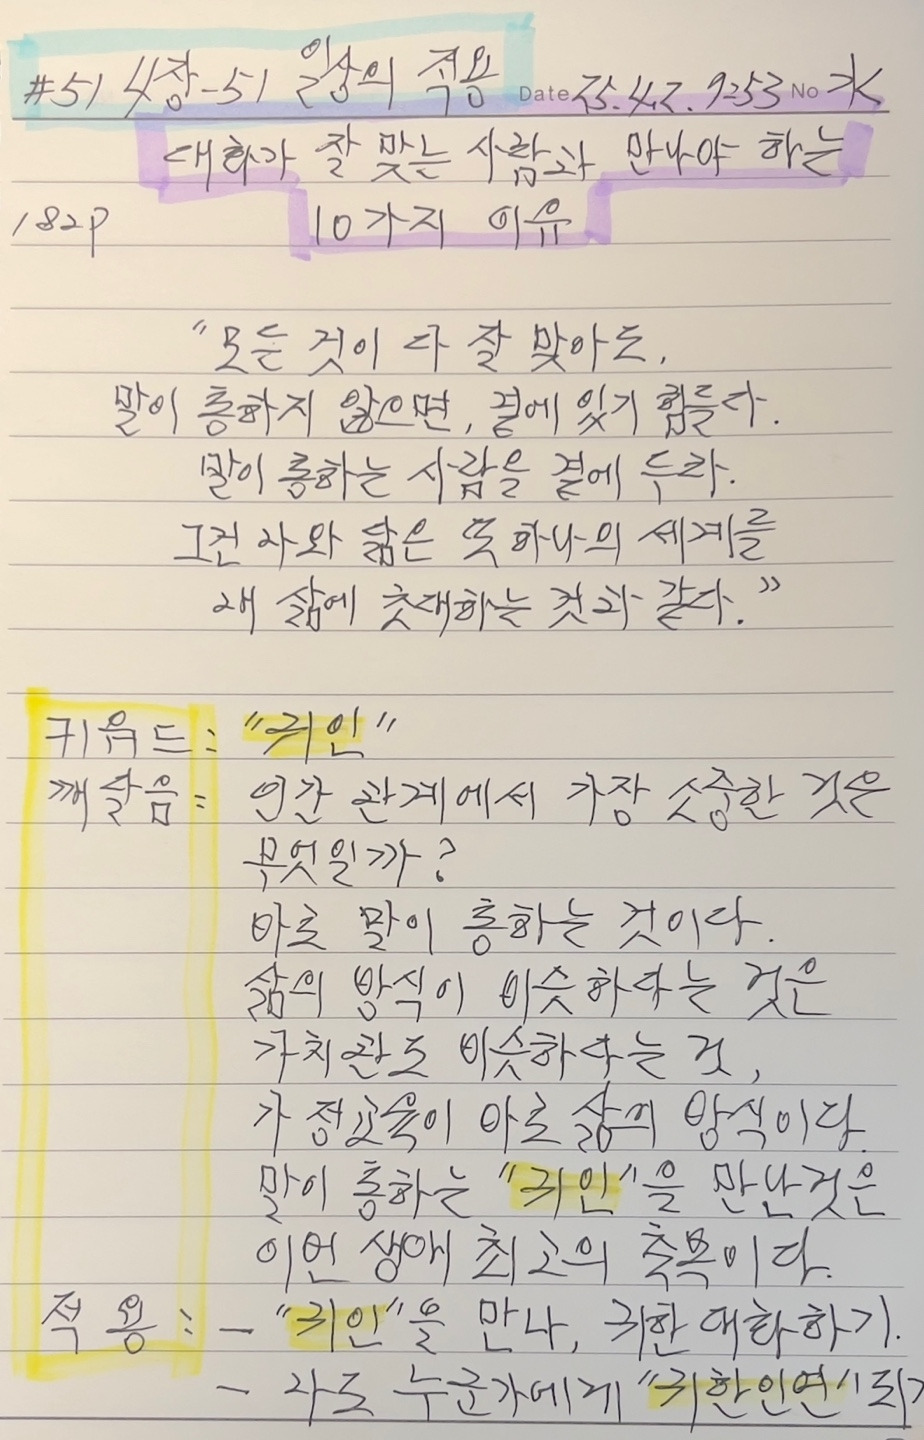 #51 4장-51 일상의 적용 Date 25.4.2. 9:53 No 水
대화가 잘 맞는 사람과 만나야 하는
182p 10가지 이유
"모든 것이 다 잘 맞아도,
말이 통하지 않으면, 곁에 있기 힘들다.
말이 통하는 사람을 곁에 두라.
그건 나와 닮은 또 하나의 세계를
내 삶에 초대하는 것과 같다."
키워드: "귀인"
깨달음: 인간 관계에서 가장 소중한 것은
무엇일까?
바로 말이 통하는 것이다.
삶의 방식이 비슷하다는 것은
가치관도 비슷하다는 것,
가정교육이 바로 삶의 방식이다.
말이 통하는 "귀인"을 만난것은
이번 생애 최고의 축복이다.
적용: - "귀인"을 만나, 귀한 대화하기.
- 나도 누군가에게 "귀한인연"되기